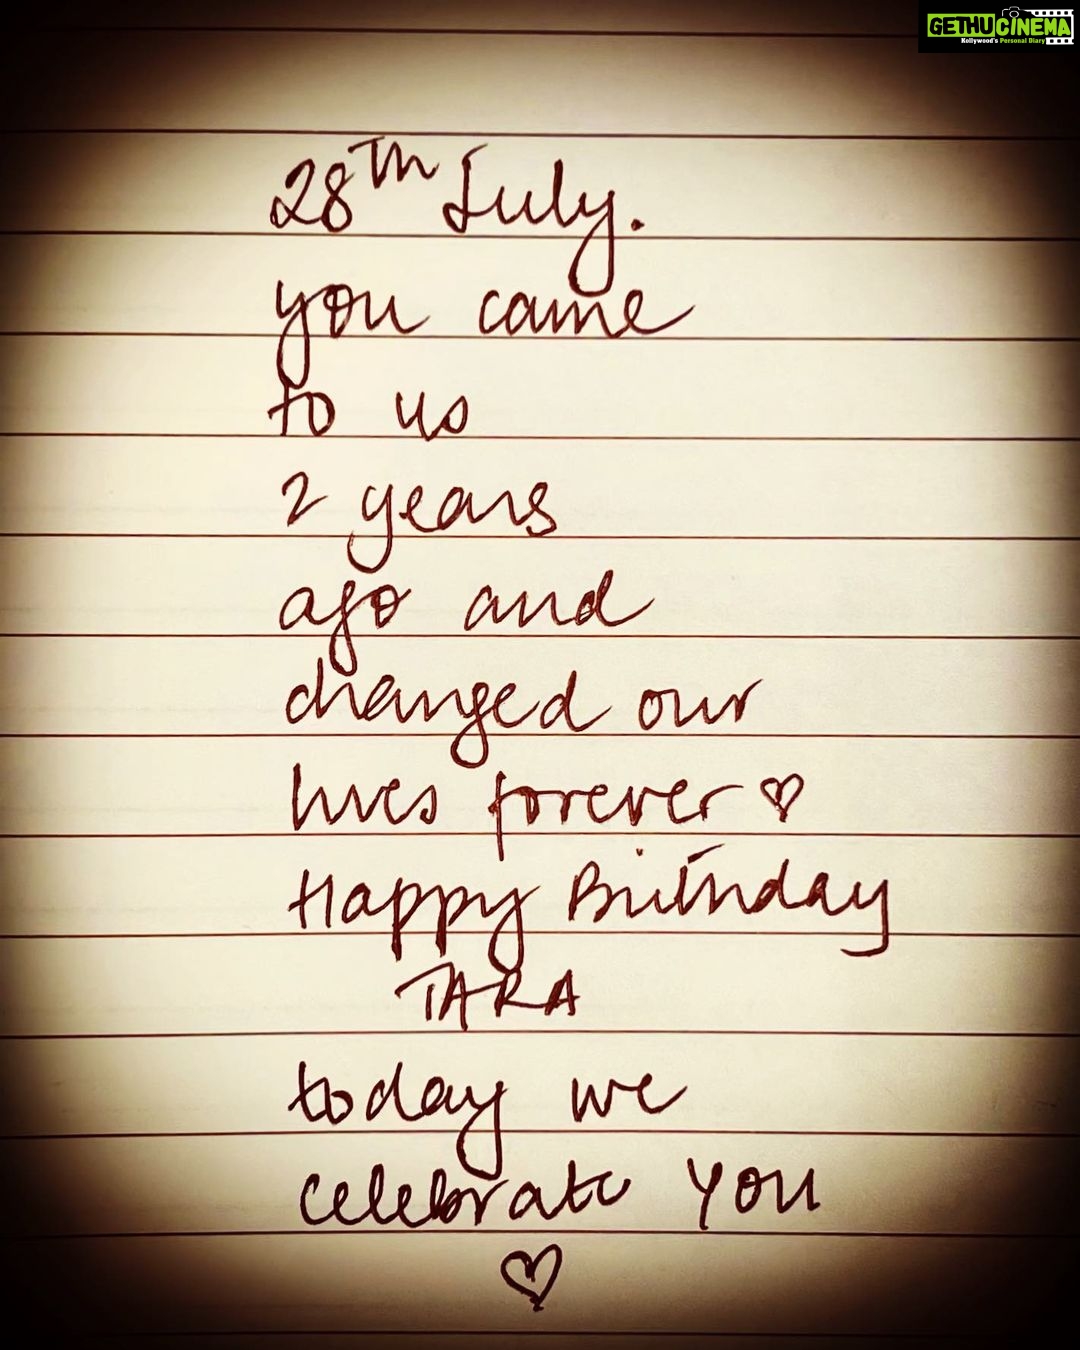 GETHUCINEMA
Kollywood's Personal Diary
28Th July.
you came
to us
2 years
ago and
changed our
lives forever ♡
Happy Birthday
TARA
today we
celebrate YOU
♡